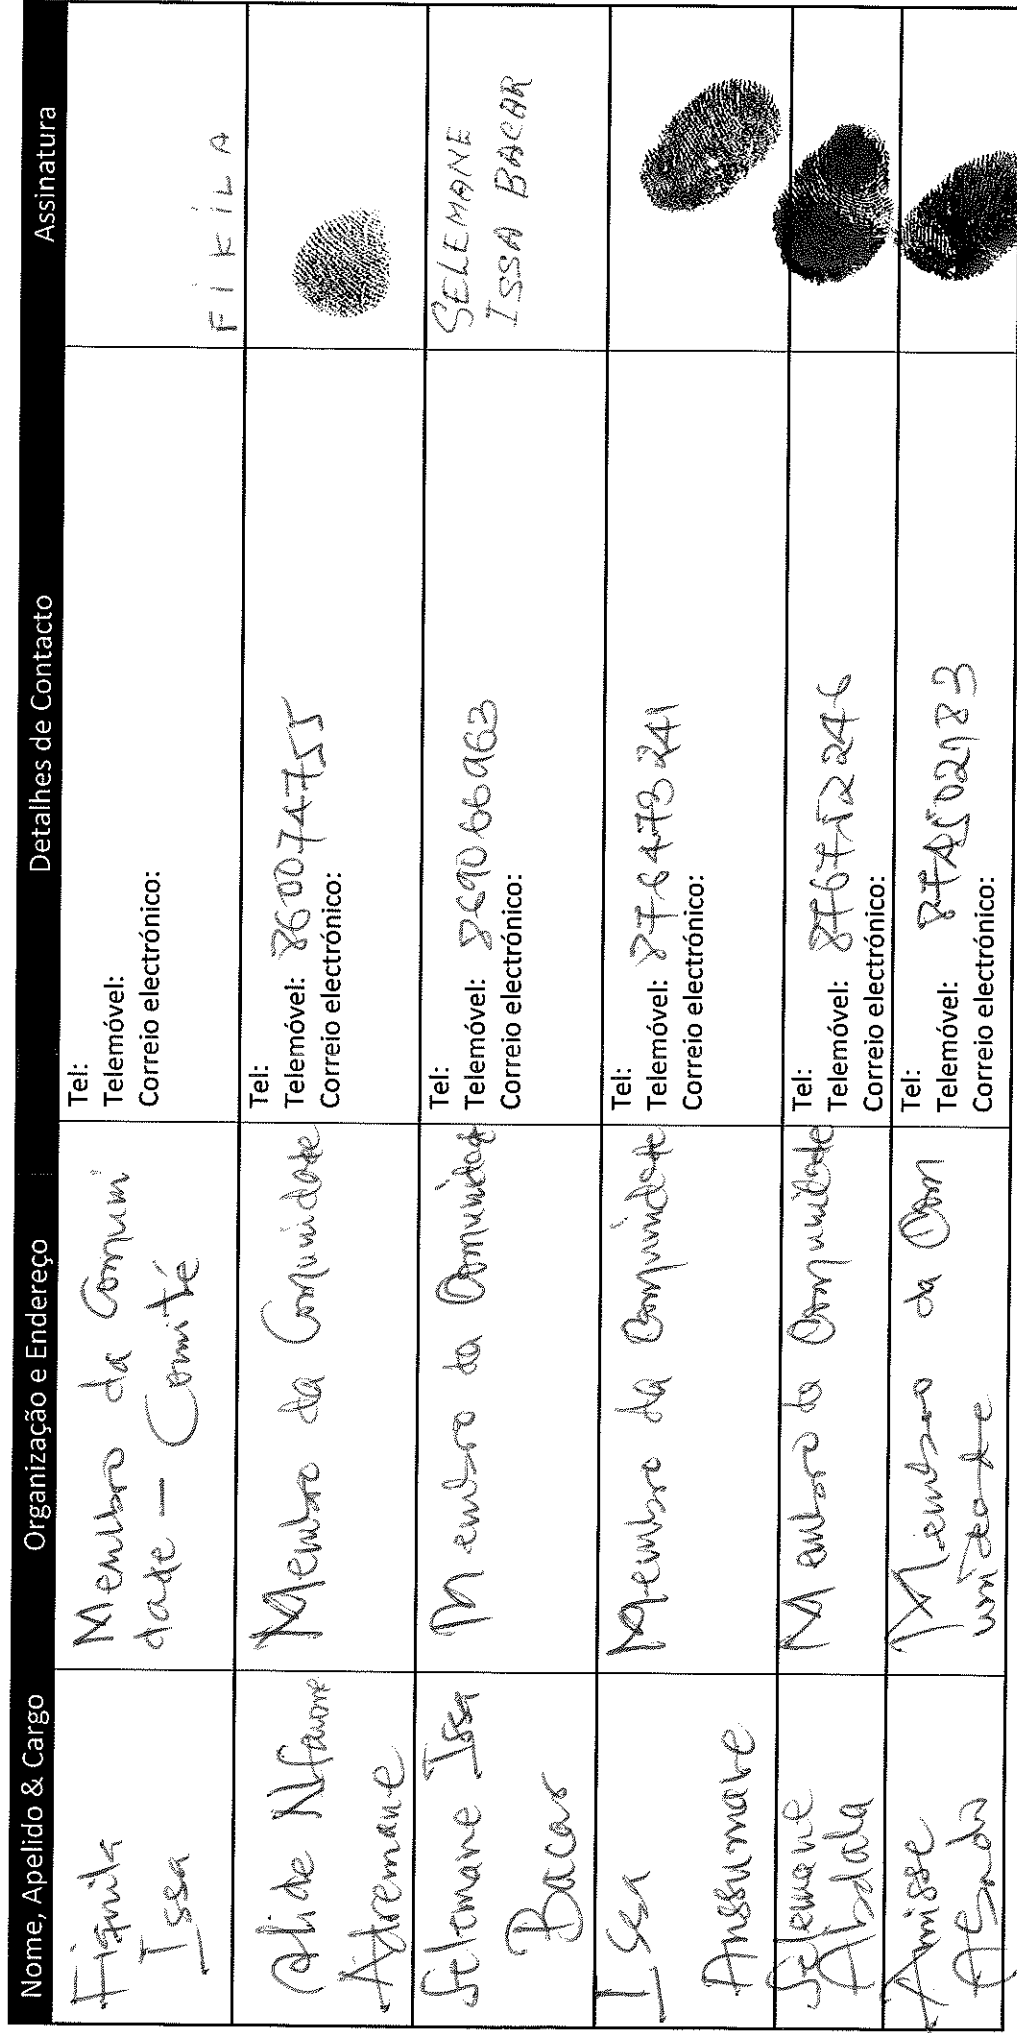 Nome, Apelido & Cargo Organização e Endereço Detalhes de Contacto Assinatura
Issa
Membro da Comuni
dade - Comité
Tel:
Telemóvel:
Correio electrónico:
FIKILA
Alide Alfane
Adremane
Membro da Comunidade
Tel:
Telemóvel: 860074755
Correio electrónico:
Selemane Issa
Bacar
Membro da Comunidade
Tel:
Telemóvel:
Correio electrónico:
SELEMANE
ISSA BACAR
Issa
Anssumane
Membro da Comunidade
Tel:
Telemóvel: 876473241
Correio electrónico:
Selemane
Abdala
Membro da Comunidade
Tel:
Telemóvel:
Correio electrónico:
Amisse
Membro da Com
unidade
Tel:
Telemóvel:
Correio electrónico: